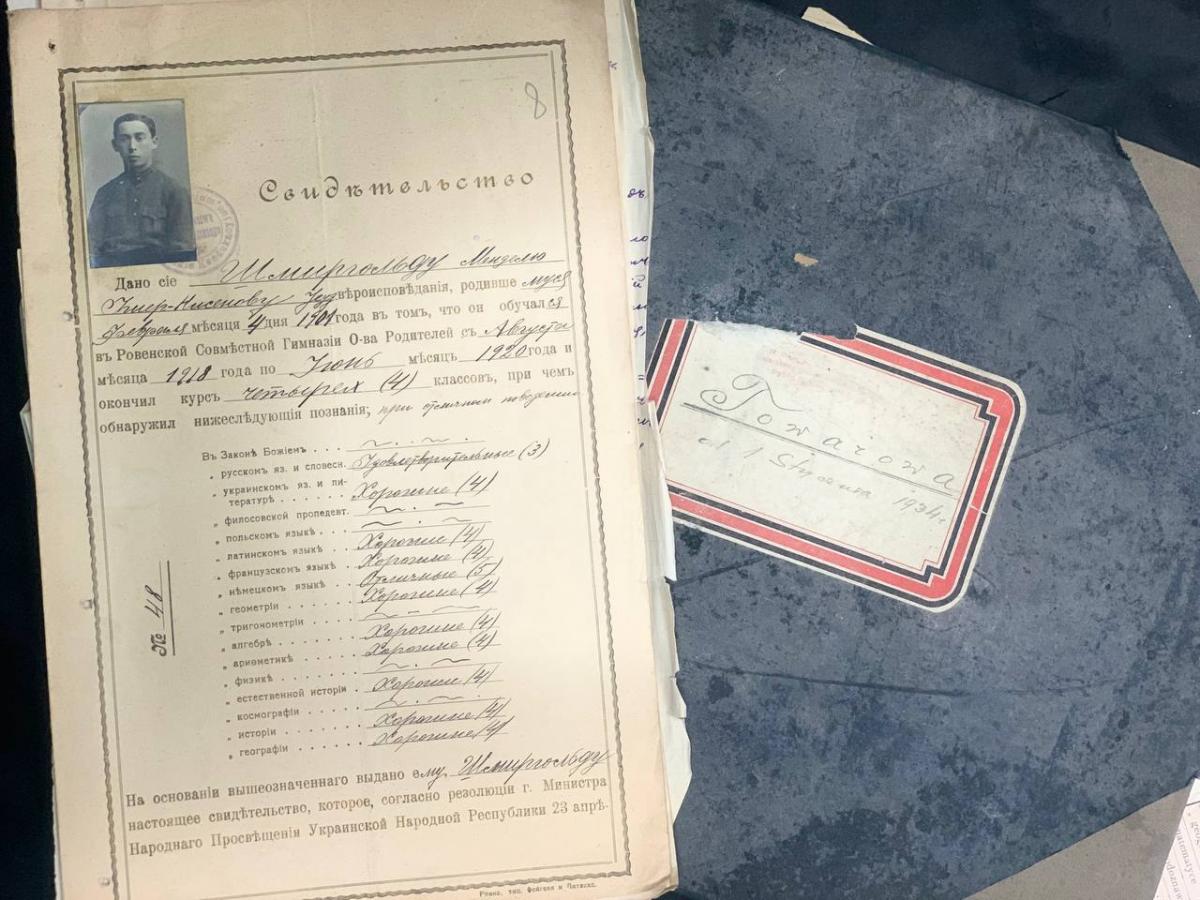 8
Свидѣтельство
Дано сіе Шмиргольду Менделю
вѣроисповѣданія, родивше муся
Февраля мѣсяца 4 дня 1901 года въ томъ, что онъ обучался
въ Ровенской Совмѣстной Гимназіи О-ва Родителей съ Августа
мѣсяца 1918 года по Іюнь мѣсяцъ 1920 года и
окончил курсъ четырех (4) классовъ, при чемъ
обнаружил нижеслѣдующія познанія, при отличном поведении
Въ Законѣ Божіемъ . . . ~ . ~ .
„ русскомъ яз. и словесн. Удовлетворительные (3)
„ украинскомъ яз. и ли-
тературѣ . . . . . . Хорошие (4)
„ философской пропедевт. ~ . ~ .
„ польскомъ языкѣ . . ~ . ~
„ латинскомъ языкѣ . Хорошие (4)
„ французскомъ языкѣ . Хорошие (4)
„ нѣмецкомъ языкѣ . Отличные (5)
„ геометріи . . . . . . . Хорошие (4)
„ тригонометріи . . . . ~ . ~
„ алгебрѣ . . . . . . . . Хорошие (4)
„ ариѳметикѣ . . . . . . Хорошие (4)
„ физикѣ . . . . . . . . ~ . ~
„ естественной исторіи . Хорошие (4)
„ космографіи . . . . . ~ . ~
„ исторіи . . . . . . . . Хорошие (4)
„ географіи . . . . . . . Хорошие (4)
№ 48
На основаніи вышеозначеннаго выдано ему, Шмиргольду
настоящее свидѣтельство, которое, согласно резолюціи г. Министра
Народнаго Просвѣщенія Украинской Народной Республики 23 апрѣ-
Ровно, тип.
Towarowa
od 1 Stycznia 1934 r.
geog
matematyce